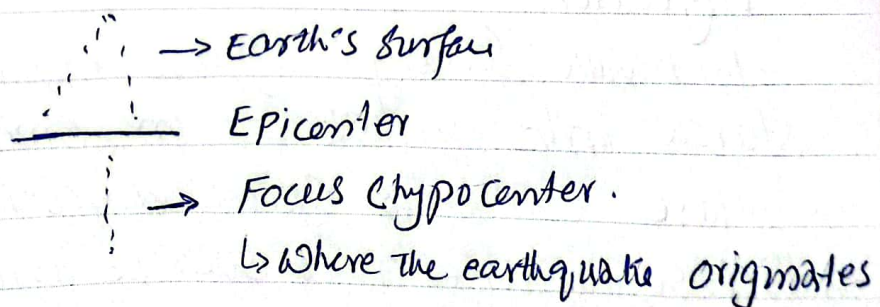 → Earth's Surface
Epicenter
→ Focus (hypocenter.
↳ Where The earthquake originates